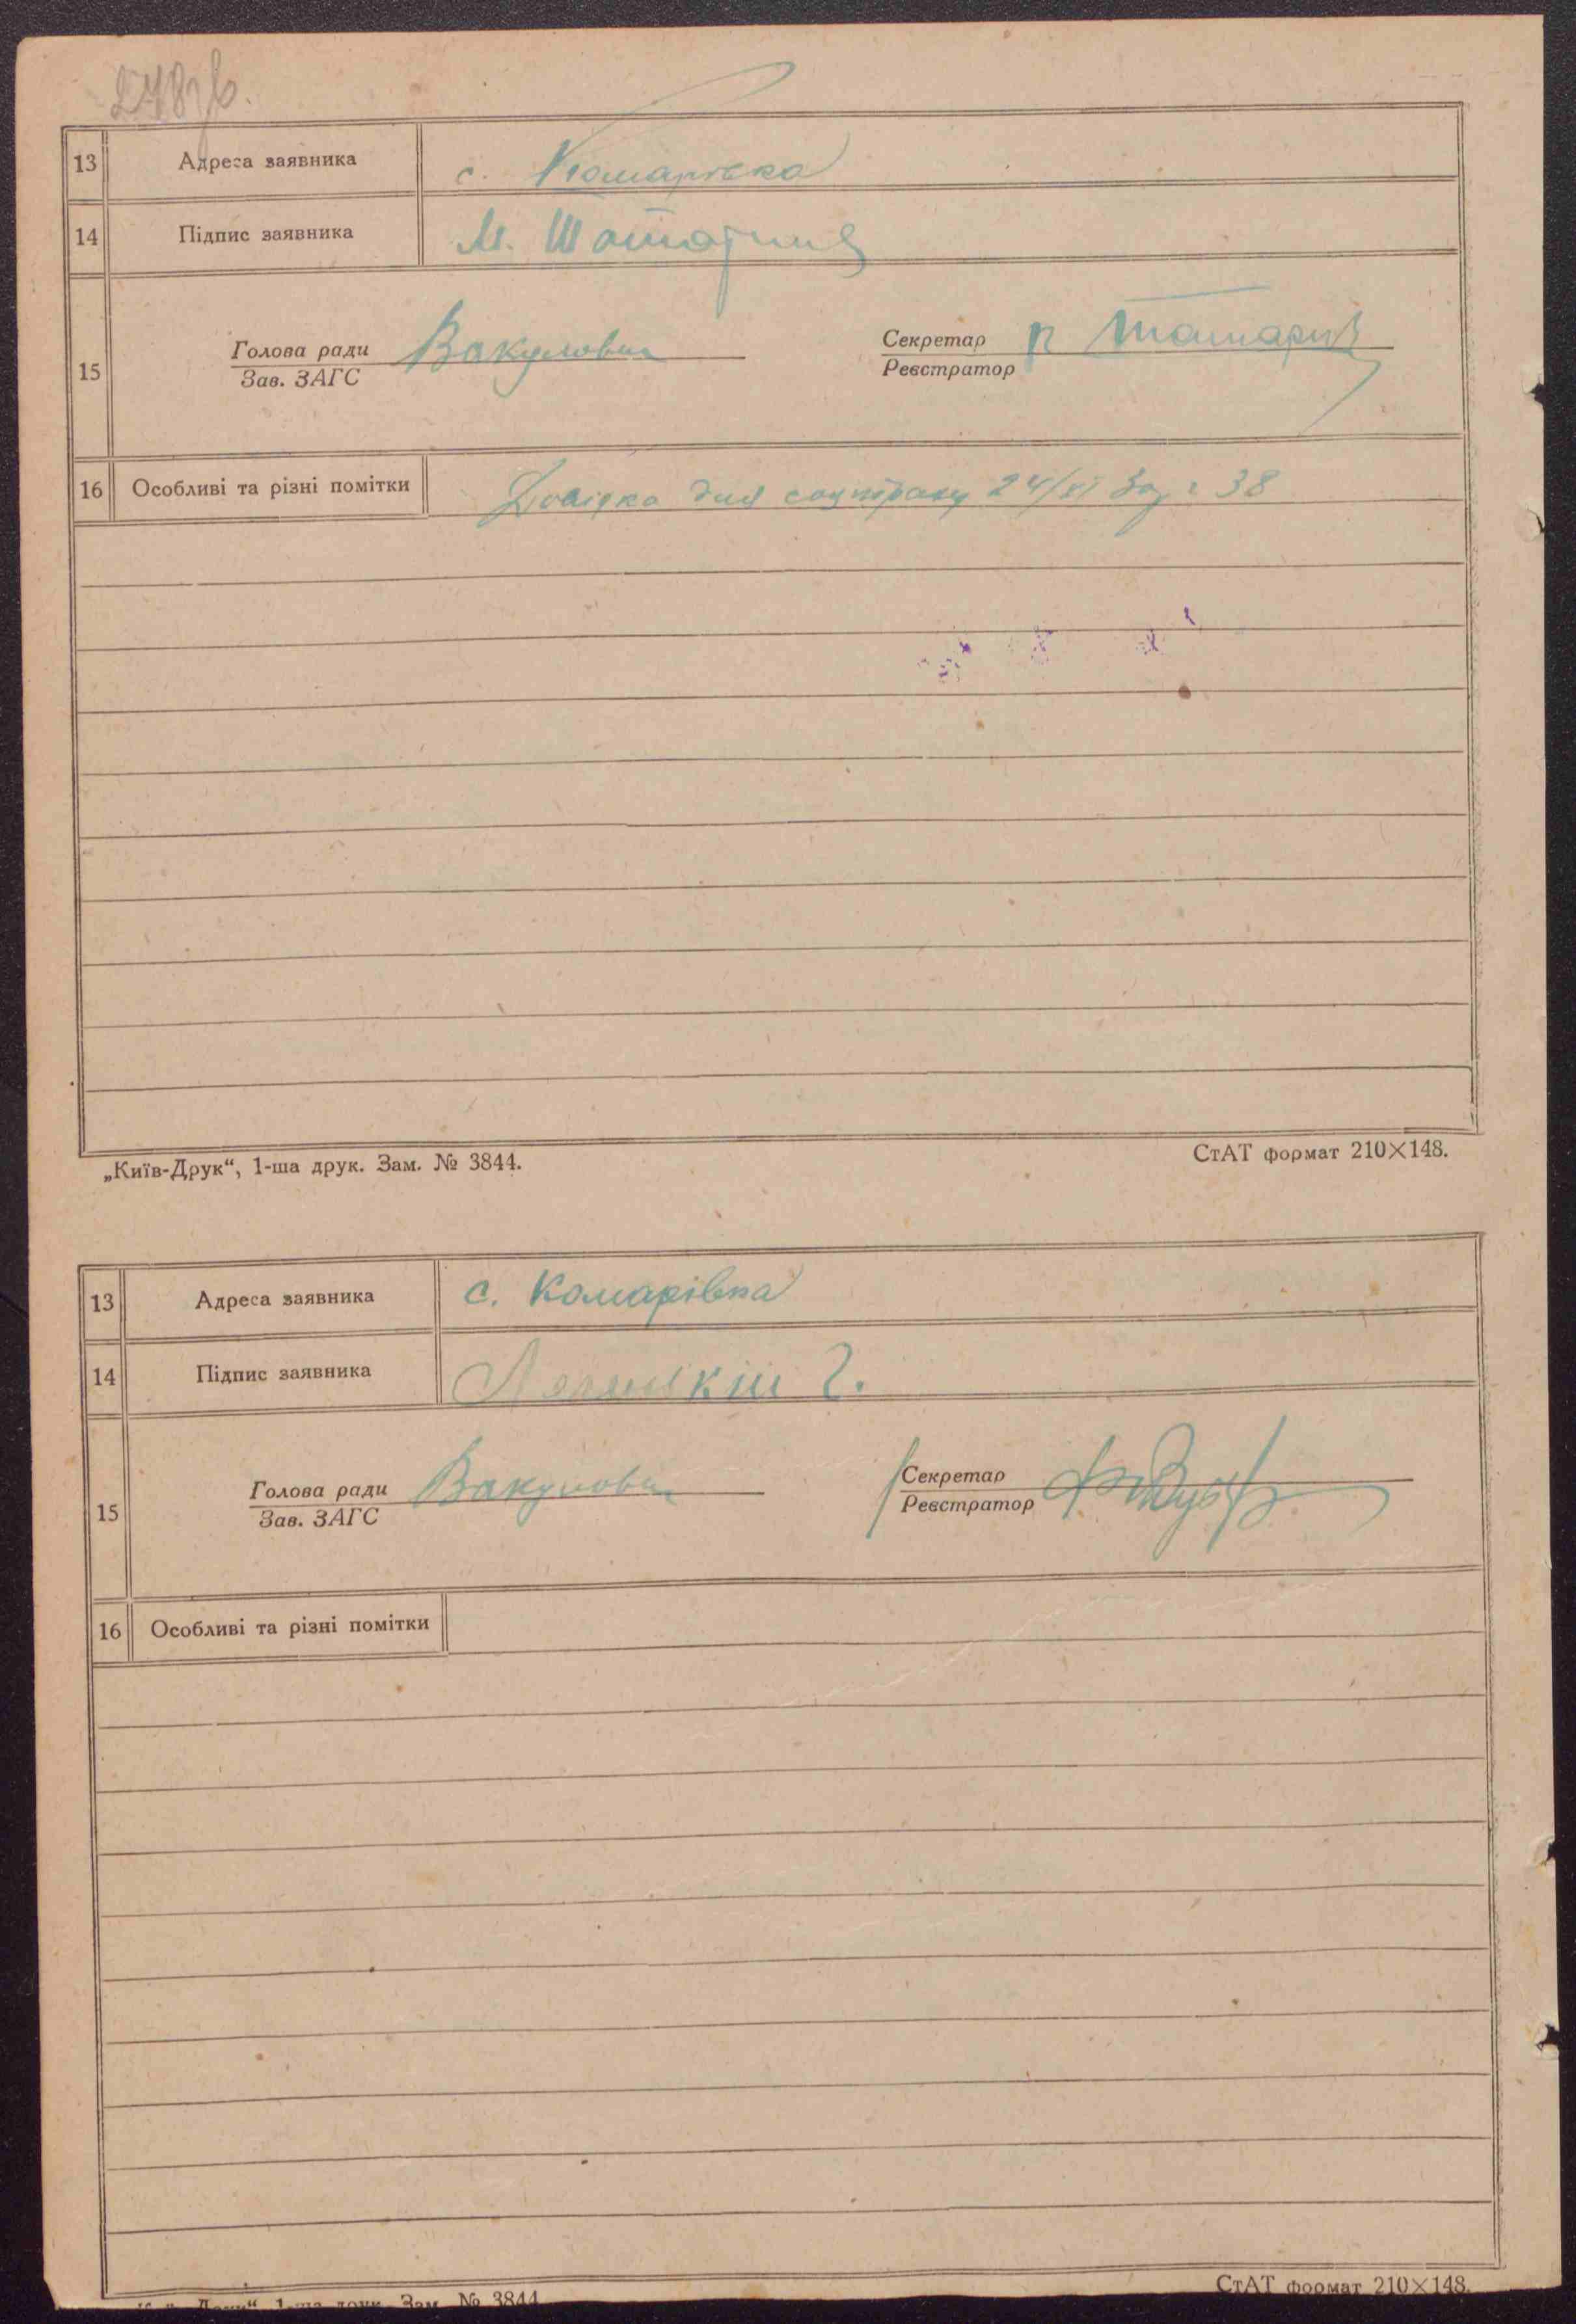 13 Адреса заявника с. Комарівка
14 Підпис заявника М.
15 Голова ради Вакулович Секретар
Зав. ЗАГС Реєстратор
16 Особливі та різні помітки Довідка для соцстраху 24/VI 38
„Київ-Друк“, 1-ша друк. Зам. № 3844. СтАТ формат 210×148.
13 Адреса заявника с. Комарівка
14 Підпис заявника
15 Голова ради Вакулович Секретар
Зав. ЗАГС Реєстратор
16 Особливі та різні помітки
1-ша друк. Зам. № 3844 СтАТ формат 210×148.